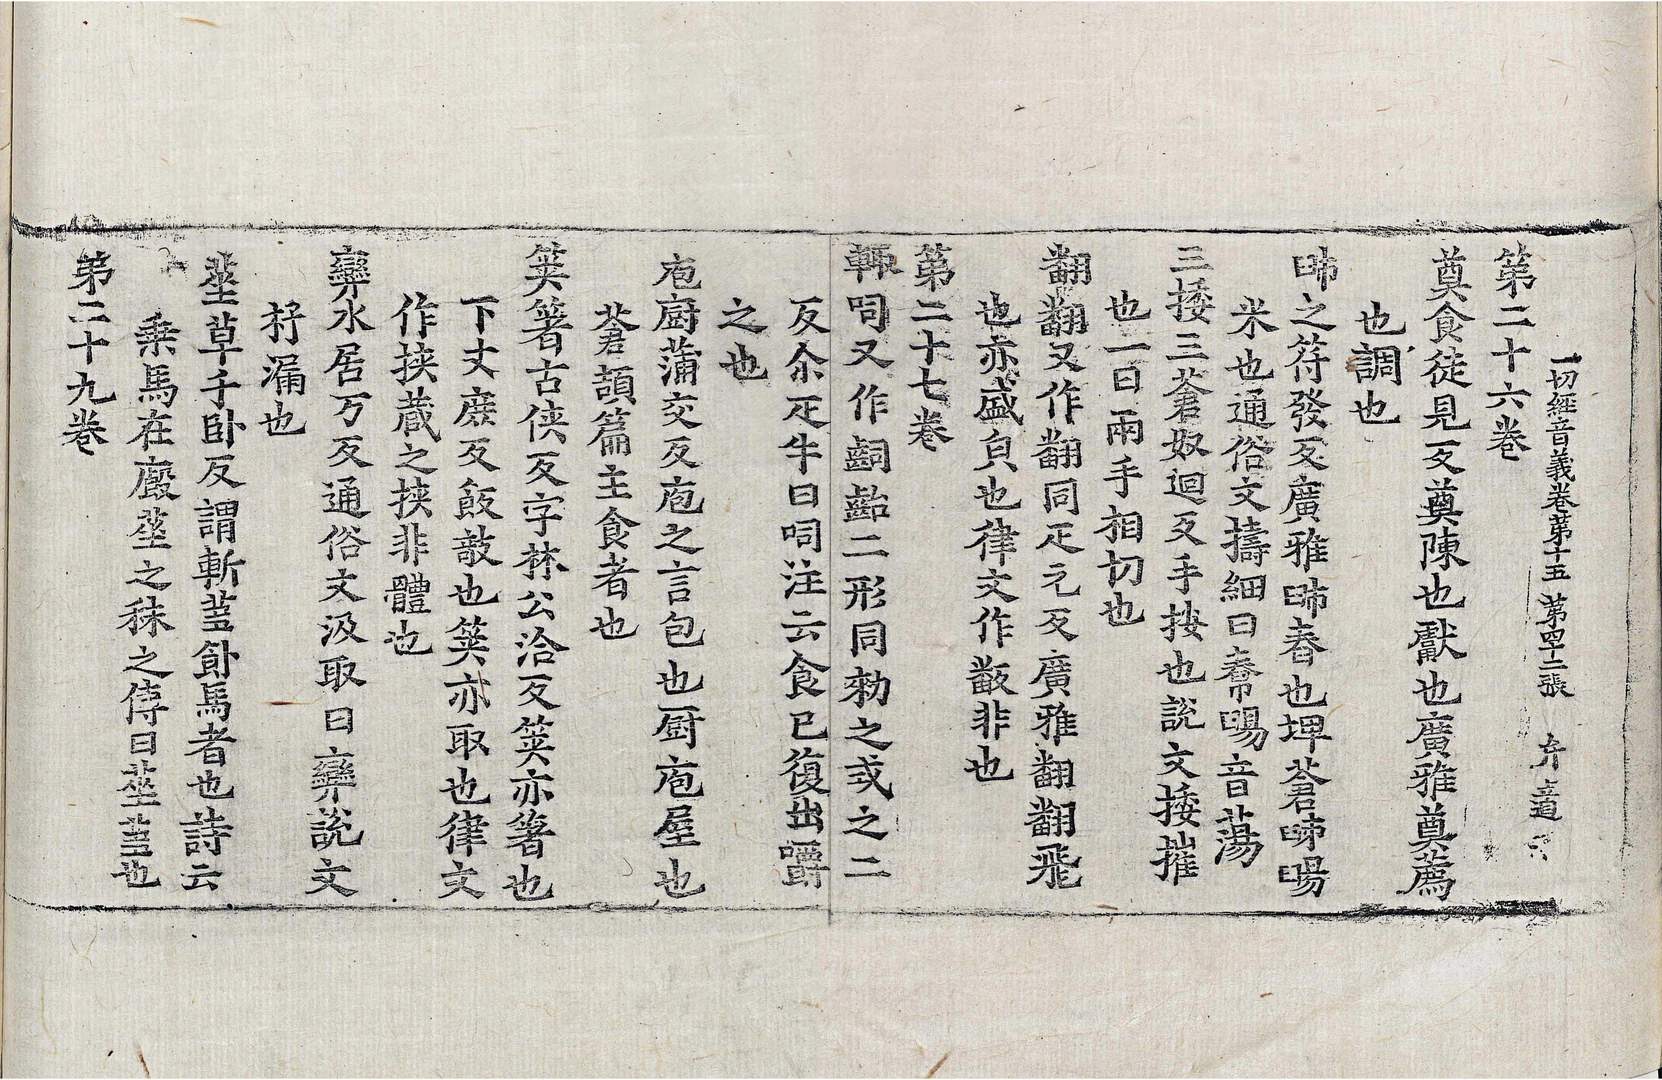 一切經音義卷第十五 第四十二張
第二十六卷
奠食徒見反奠陳也獻也廣雅奠薦
也調也
𣇄之符發反廣雅𣇄舂也埤蒼𣇄暘
米也通俗文擣細曰𣇄暘音蕩
三捼三蒼奴迴反手按也說文捼摧
也一曰兩手相切也
翻翻又作翻同疋元反廣雅翻翻飛
也亦盛皃也律文作䪤非也
第二十七卷
輙呞又作齝二形同勑之或之二
反尒疋牛曰呞注云食已復出嚼
之也
庖廚蒲交反庖之言包也廚庖屋也
蒼頡篇主食者也
筴箸古俠反字林公洽反筴亦箸也
下丈庶反飯敧也筴亦取也律文
作挾藏之挾非體也
𣂏水居万反通俗文汲取曰𣂏說文
抒漏也
莝草千卧反謂斬蒭飤馬者也詩云
乗馬在廄莝之秣之傳曰莝蒭也
第二十九卷